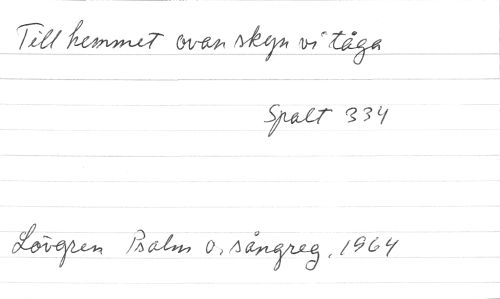 Till hemmet ovan skyn vi tåga
Spalt 334
Lövgren Psalm o. sångreg. 1964